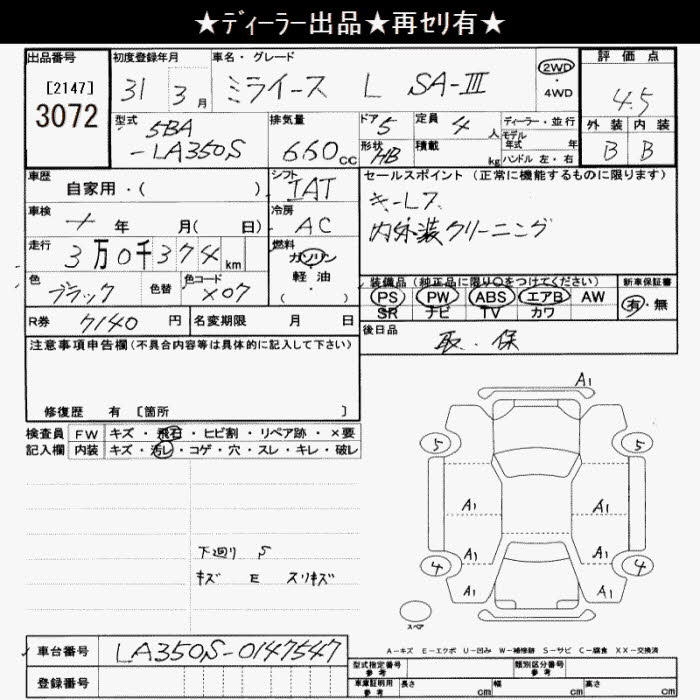 ★ディーラー出品★再セリ有★
出品番号
[2147]
3072
初度登録年月
31 3 月
車名・グレード
ミライース L SA-Ⅲ
2WD
・
4WD
評価点
4.5
外装 内装
B B
型式
5BA
-LA350S
排気量
660 cc
ドア
5
定員
4 人
形状
HB
積載
kg
ディーラー・並行
モデル
年式 年
ハンドル 左・右
車歴
自家用・( )
シフト
IAT
セールスポイント (正常に機能するものに限ります)
キーレス
内外装クリーニング
車検
年 月( 日)
冷房
AC
走行
3万0千374 km
燃料
ガソリン
軽・油
( )
色
ブラック
色替
色コード
X07
装備品 (純正品に限り〇をつけてください)
PS PW ABS エアB AW
SR ナビ TV カワ
新車保証書
有・無
R券 7140 円
名変期限 月 日
後日品
取.保
注意事項申告欄(不具合内容等は具体的に記入して下さい)
修復歴 有 [箇所 ]
検査員
記入欄
FW キズ・飛石・ヒビ割・リペア跡・×要
内装 キズ・汚レ・コゲ・穴・スレ・キレ・破レ
下廻り S
キズ E スリキズ
A1
5 5
A1 A1
A1 A1
4 4
A1 A1
スペア
A-キズ E-エクボ U-凹み W-補修跡 S-サビ C-腐食 XX-交換済
車台番号 LA350S-0147547
登録番号
型式指定番号
参考
類別区分番号
参考
車庫証明用
参考
長さ cm 幅 cm 高さ cm